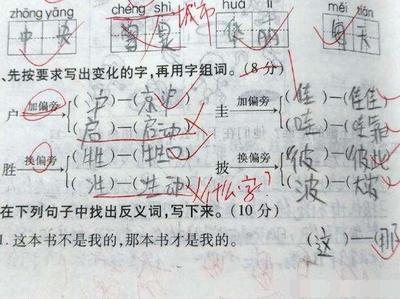 zhōng yāng chéng shì huá lì měi tiān
中央 城市 华丽 每天
先按要求写出变化的字,再用字组词。(8分)
户 加偏旁 (沪)—( ) 圭 加偏旁 (佳)—(佳佳)
(启)—(启动) (哇)—(哇 )
胜 换偏旁 (牲)—(牲口) 披 换偏旁 (彼)—(彼此)
( )—( 动) 什么字 (波)—( )
在下列句子中找出反义词,写下来。(10分)
1. 这本书不是我的,那本书才是我的。 (这)—(那